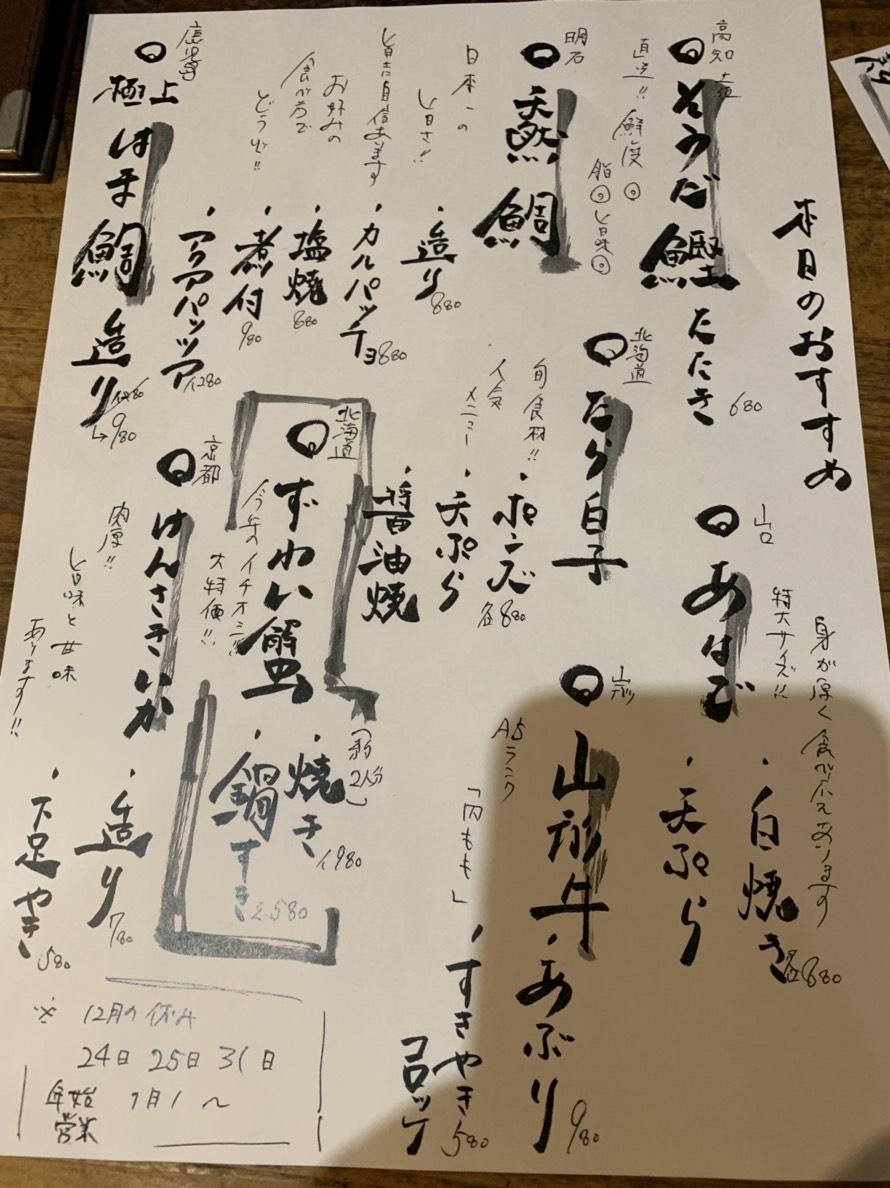 本日のおすすめ
高知
そうだ鰹たたき
680
直送!! 鮮度◎
脂◎ 旨味◎
山口
あはご
特大サイズ!!
身が厚く食べ応えあります
・白焼き
・天ぷら
各880
明石
天然鯛
日本一の
旨さ!!
旨さに自信あります
お好みの
食べ方で
どうぞ!!
・造り 880
・カルパッチョ 880
・塩焼 880
・煮付 980
・アクアパッツァ 1,280
北海道
たら白子
旬食材!!
人気
メニュー
・ポンズ
・天ぷら
・醤油焼
各880
山形
山形牛
A5ランク
「内もも」
・あぶり 980
・すきやき
コロッケ 580
鹿児島
極上
はま鯛 造り
→980
北海道
ずわい蟹
今年のイチオシ!!
大特価!!
・焼き 1,980
・鍋すき 2,580
京都
けんさきいか
肉厚!!
旨味と甘味
あります!!
・造り 780
・下足やき 580
※ 12月の休み
24日 25日 31日
年始 1月1〜
営業